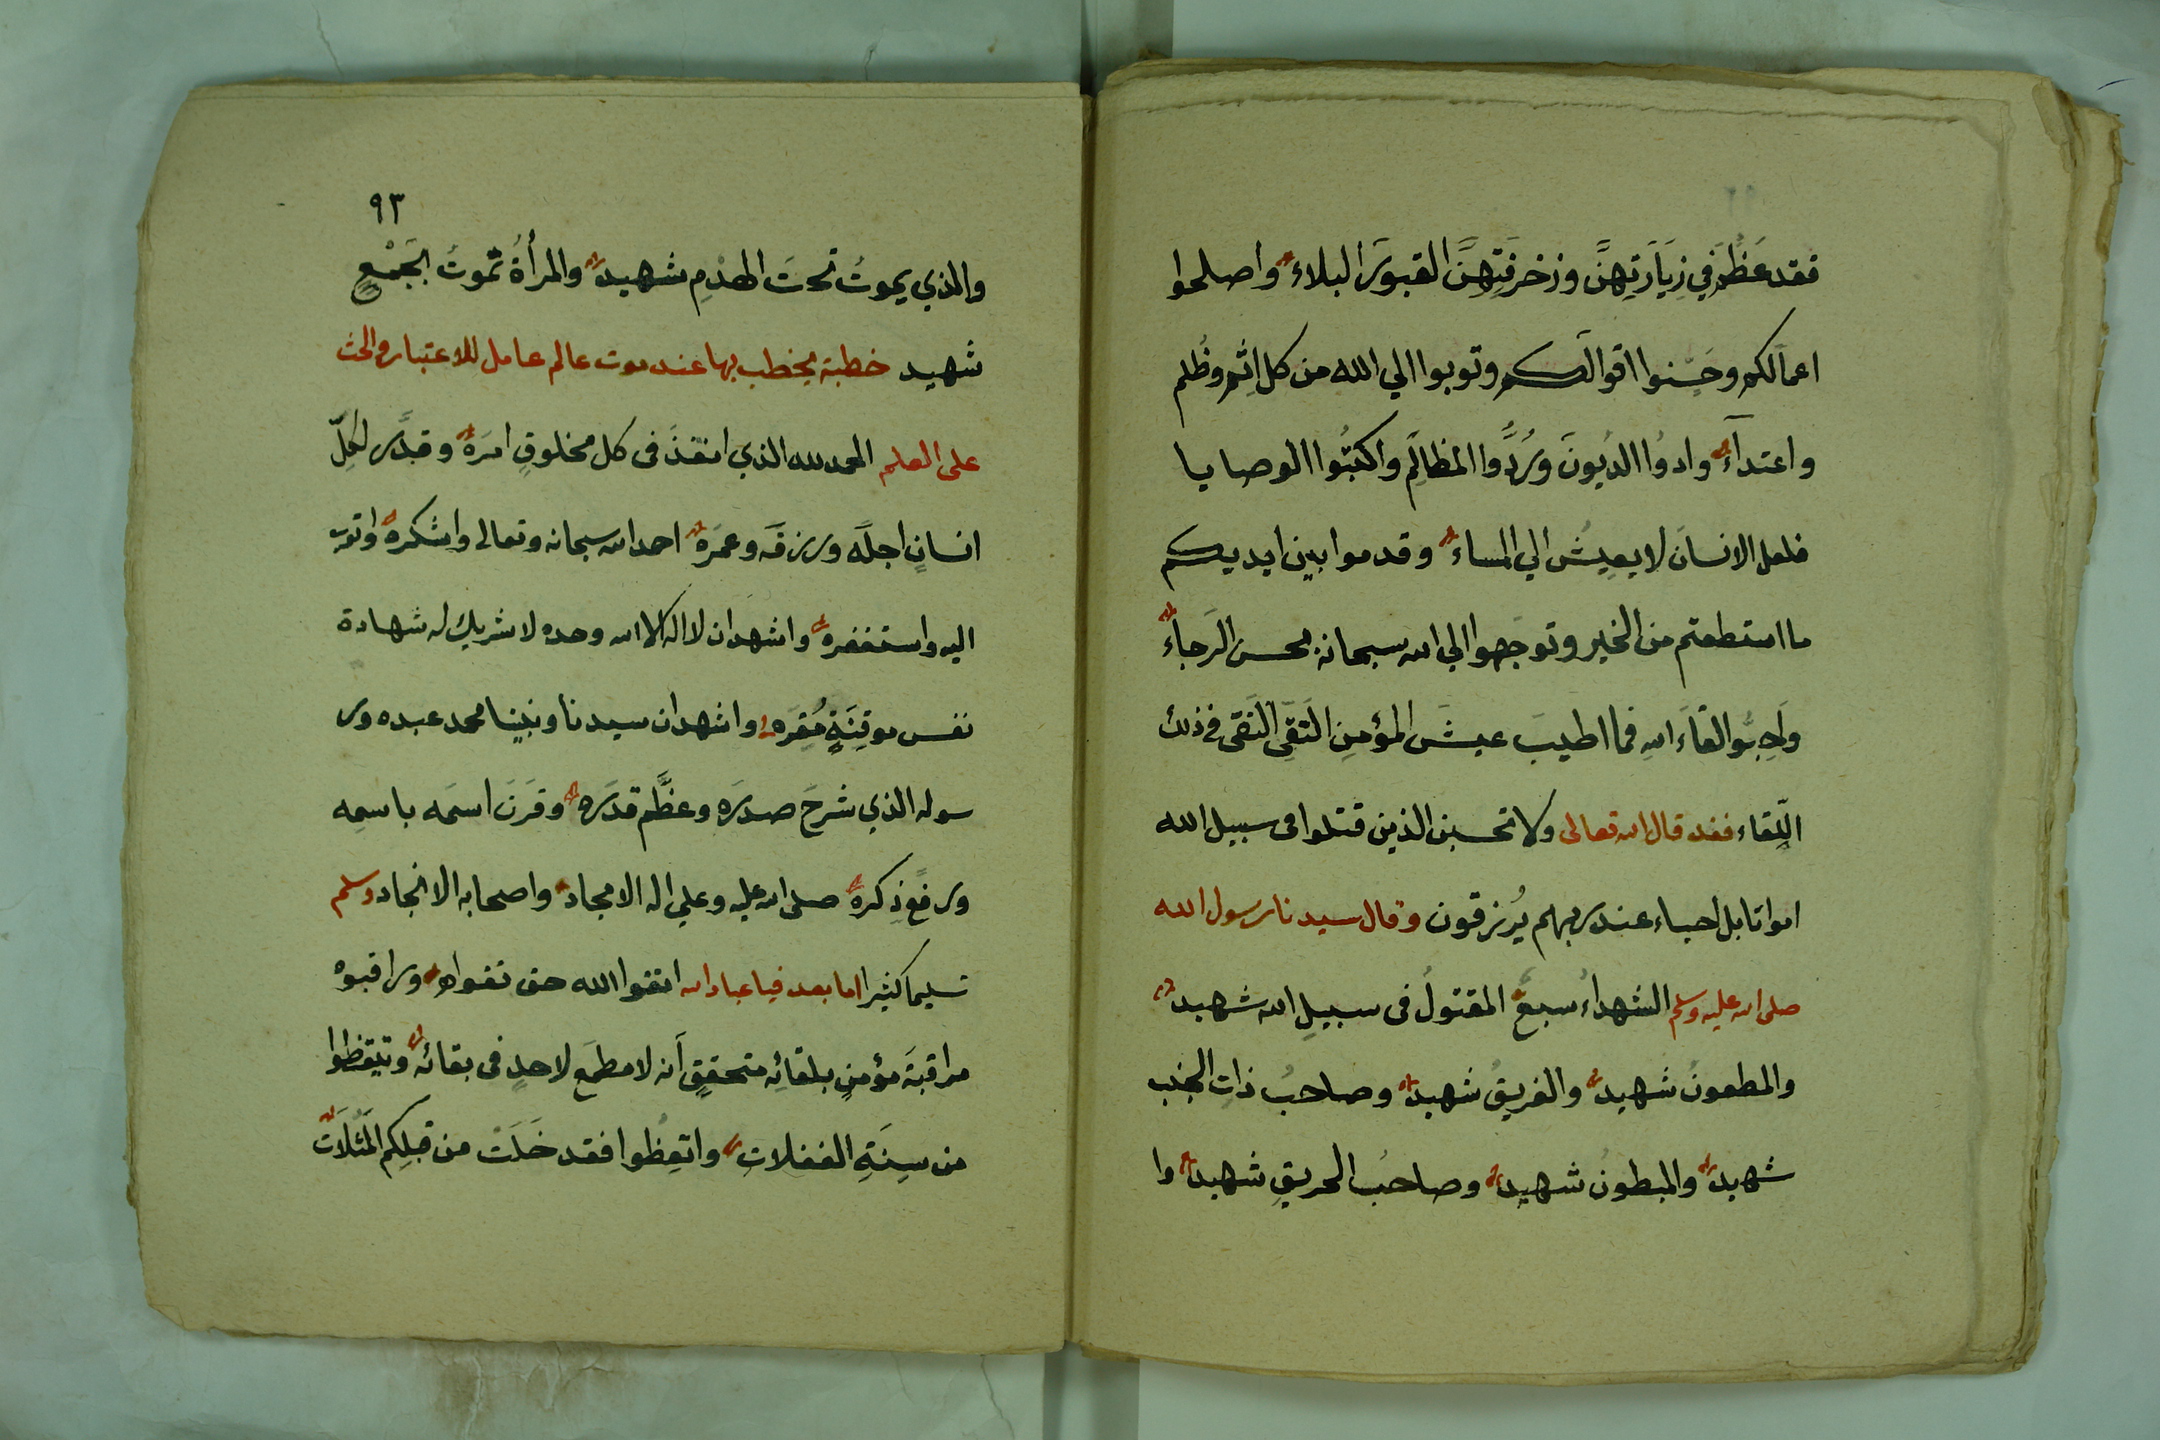 فقد عَظُمَ في زِيَارَتِهِنَّ وزخرفَتِهِنَّ القبورَ البلاء واصلحوا
اعمالَكم وحَسِّنوا اقوالَكم وتوبوا الي الله من كل اثم وظُلم
واعتدآء وادوُا الديُونَ ورُدُّوا المظالِم واكتبُوا الوصايا
فلعل الانسانَ لا يعيشُ الي المساء وقدموا بين ايديكم
ما استطعتم من الخير وتوجَهوا الي الله سبحانه بحسن الرَجاءُ
واَحِبُّوا لقاءَ اللهِ فما اطيبَ عيشَ المؤمنِ التَقِّى النَقى في ذلك
اللِقاء فقد قال الله تعالى ولا تحسبن الذين قتلوا في سبيل الله
امواتا بل احياء عند ربهم يُرزقون وقال سيدنا رسول الله
صلى الله عليه وسلم الشهداءُ سبعٌ المقتولُ في سبيلِ الله شهيد
والمطعونُ شهيد والغريقُ شهيد وصاحبُ ذاتِ الجنب
شهيد والمبطونُ شهيد وصاحبُ الحريقِ شهيد وا
٩٣
والذي يموتُ تحتَ الهدْمِ شهيد والمرأةُ تموتُ بجَمْعٍ
شهيد خطبة يخطب بها عند موت عالم عامل للاعتبار والحث
على العلم الحمد لله الذي انفذَ في كل مخلوقٍ امرَهُ وقدَّر لكلِّ
انسانٍ اجلَه ورزقَه وعمرَه احمد الله سبحانه وتعالى واشكره واتوب
اليه واستغفره واشهدَ ان لا اله الا الله وحده لا شريك له شهادة
نفس موقِنَةٍ مُقِرَه واشهد ان سيدنا ونبينا محمد عبده ور
سوله الذي شرحَ صدرَه وعظَّم قدرَه وقرَنَ اسمَه باسمِه
ورفعَ ذِكرهُ صلى الله عليه وعلي اله الامجاد واصحابه الانجاد وسلم
تسليما كثيرا اما بعد فيا عباد الله اتقوا الله حق تقواه وراقبوه
مراقبَة مؤمنٍ بلقائِه متحققٍ اَنه لا مطمَع لاحدٍ في بقائه وتيقظوا
من سِنَةِ الغفلات واتعِظُوا فقد خَلَتْ من قبلِكم المَثُلاَتُ